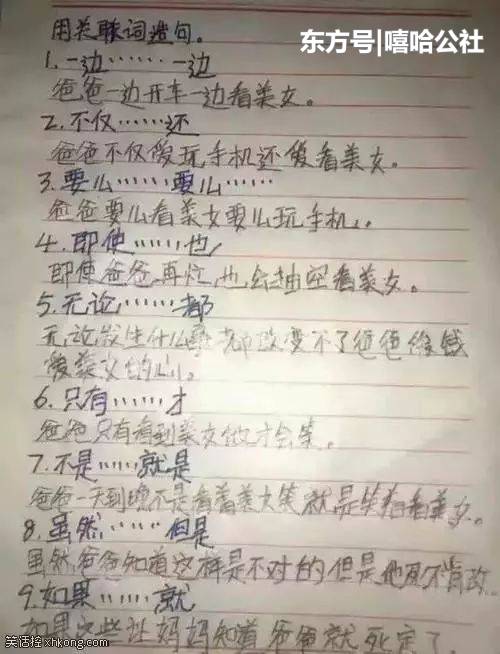 东方号|嘻哈公社
用关联词造句。
1.一边……一边
爸爸一边开车一边看美女。
2.不仅……还
爸爸不仅爱玩手机还爱看美女。
3.要么……要么……
爸爸要么看美女要么玩手机。
4.即使……也
即使爸爸再忙,也会抽空看美女。
5.无论……都
无论发生什么事都改变不了爸爸
爱美女的心。
6.只有……才
爸爸只有看到美女他才会笑。
7.不是……就是
爸爸一天到晚不是看着美女笑就是笑着看美女。
8.虽然……但是
虽然爸爸知道这样是不对的但是他死不肯改
9.如果……就
如果这些让妈妈知道爸爸就死定了
笑话控 xhkong.com